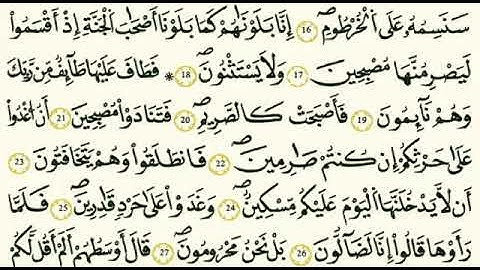 سَنَسِمُهُۥ عَلَى ٱلْخُرْطُومِ ١٦ إِنَّا بَلَوْنَٰهُمْ كَمَا بَلَوْنَآ أَصْحَٰبَ ٱلْجَنَّةِ إِذْ أَقْسَمُوا۟
لَيَصْرِمُنَّهَا مُصْبِحِينَ ١٧ وَلَا يَسْتَثْنُونَ ١٨ * فَطَافَ عَلَيْهَا طَآئِفٌ مِّن رَّبِّكَ
وَهُمْ نَآئِمُونَ ١٩ فَأَصْبَحَتْ كَٱلصَّرِيمِ ٢٠ فَتَنَادَوْا۟ مُصْبِحِينَ ٢١ أَنِ ٱغْدُوا۟
عَلَىٰ حَرْثِكُمْ إِن كُنتُمْ صَٰرِمِينَ ٢٢ فَٱنطَلَقُوا۟ وَهُمْ يَتَخَٰفَتُونَ ٢٣
أَن لَّا يَدْخُلَنَّهَا ٱلْيَوْمَ عَلَيْكُم مِّسْكِينٌ ٢٤ وَغَدَوْا۟ عَلَىٰ حَرْدٍ قَٰدِرِينَ ٢٥ فَلَمَّا
رَأَوْهَا قَالُوٓا۟ إِنَّا لَضَآلُّونَ ٢٦ بَلْ نَحْنُ مَحْرُومُونَ ٢٧ قَالَ أَوْسَطُهُمْ أَلَمْ أَقُل لَّكُمْ